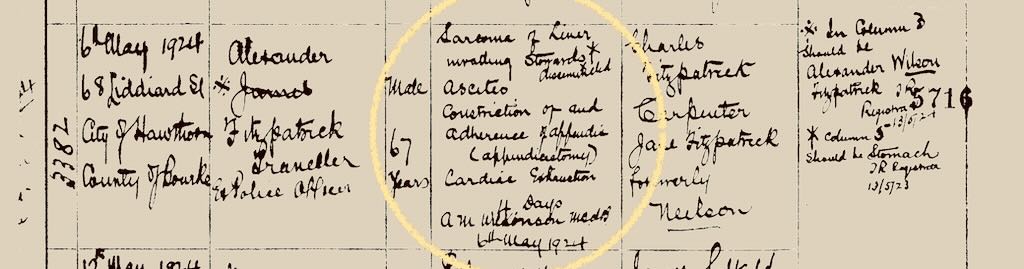 3382
6th May 1924
68 Liddiard St
City of Hawthorn
County of Bourke
Alexander
* James
Fitzpatrick
Traveller
Ex Police Officer
Male
67
Years
Sarcoma of Liver
invading Stomards *
disseminated
Ascites
Constriction of and
Adherence of appendix
(appendicectomy)
Cardiac Exhaustion
4 Days
A M Wilkinson
6th May 1924
Charles
Fitzpatrick
Carpenter
Jane Fitzpatrick
formerly
Neilson
* In Column 3
should be
Alexander Wilson
Fitzpatrick
Registrar
13/5/24
5716
* Column 5
should be Stomach
Registrar
13/5/23
12th May 1924